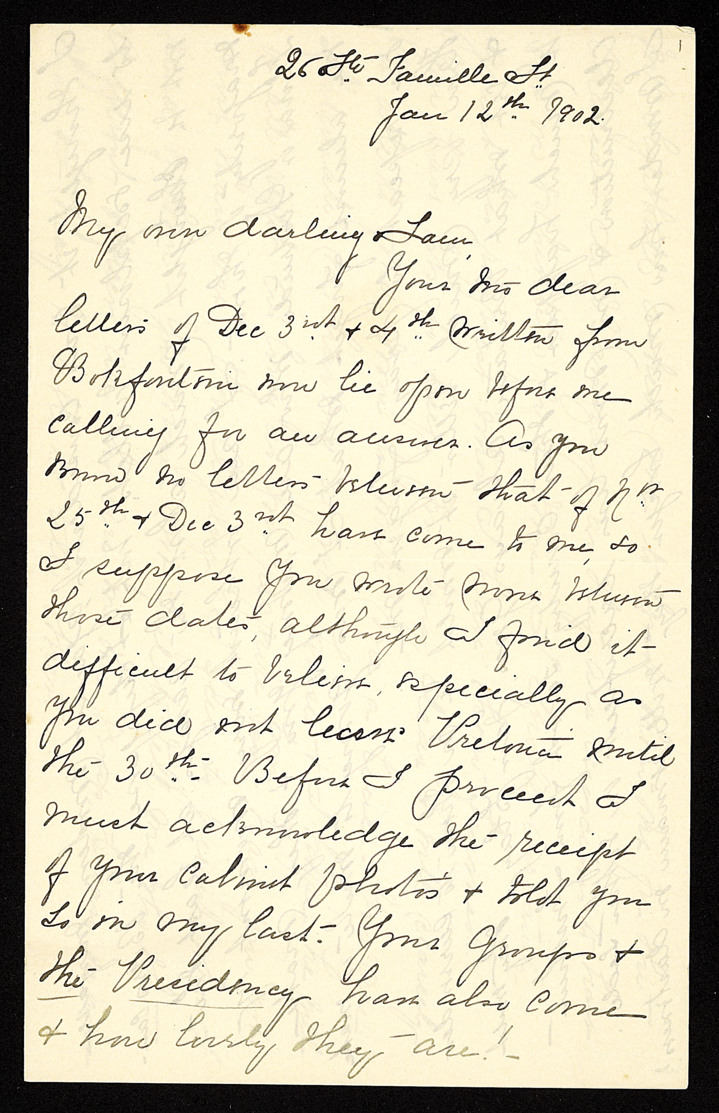 26 Ste Famille St
Jan 12th 1902.
My own darling Sam,
Your two dear
letters of Dec 3rd & 4th written from
Bokfontein now lie open before me
calling for an answer. As you
know no letters between that of Nov
25th & Dec 3rd have come to me, so
I suppose you wrote none between
those dates, although I find it
difficult to believe, especially as
you did not leave Pretoria until
the 30th. Before I proceed I
must acknowledge the receipt
of your cabinet photos & told you
so in my last. Your Groups &
the Presidency have also come
& how lovely they are! -